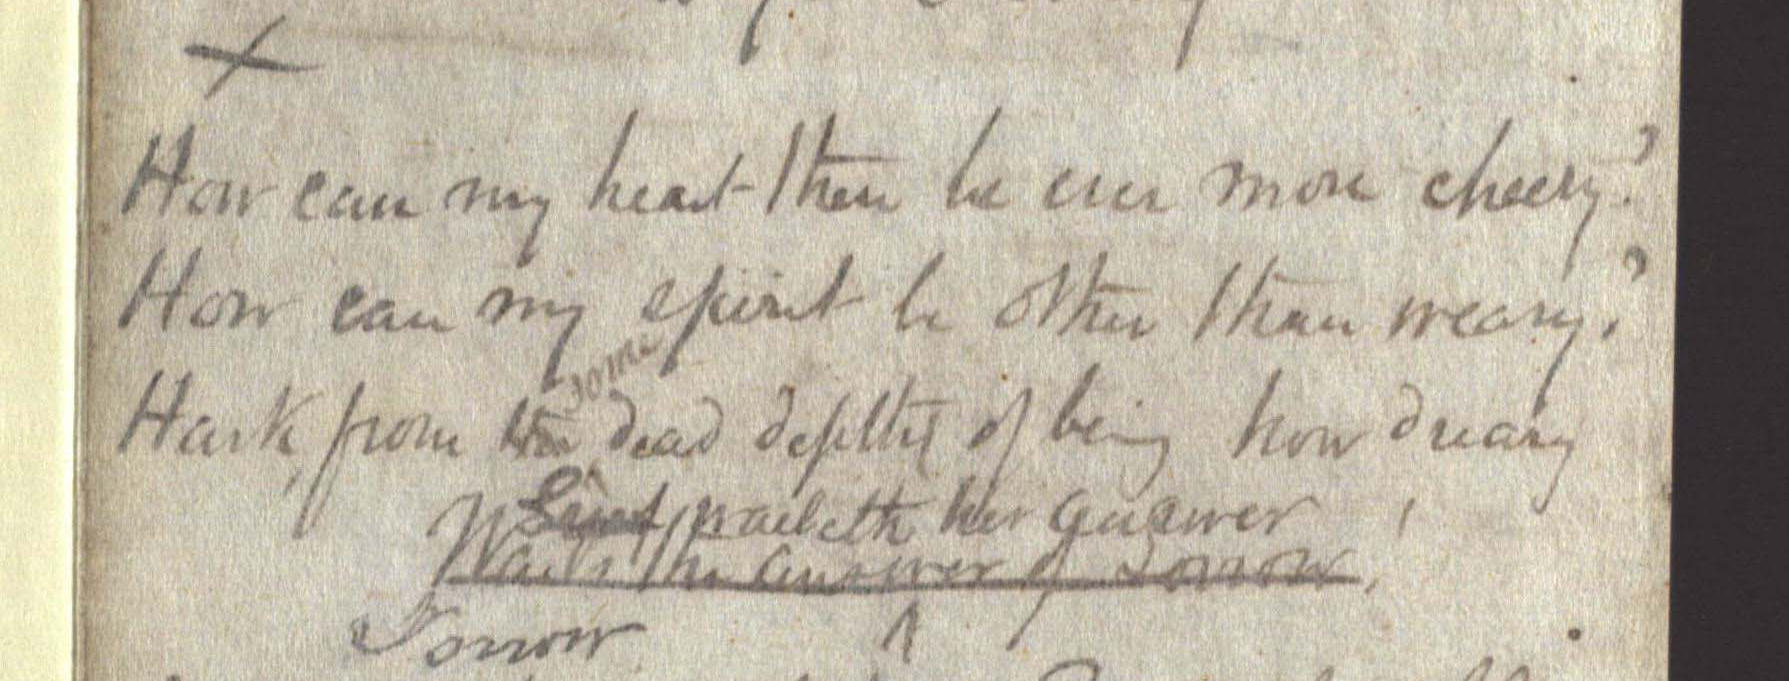 How can my heart then be ever more cheery?
How can my spirit be other than weary?
some
Hark, from the dead depths of being how dreary
waileth her answer !
Wails the answer of Sorrow,
Sorrow